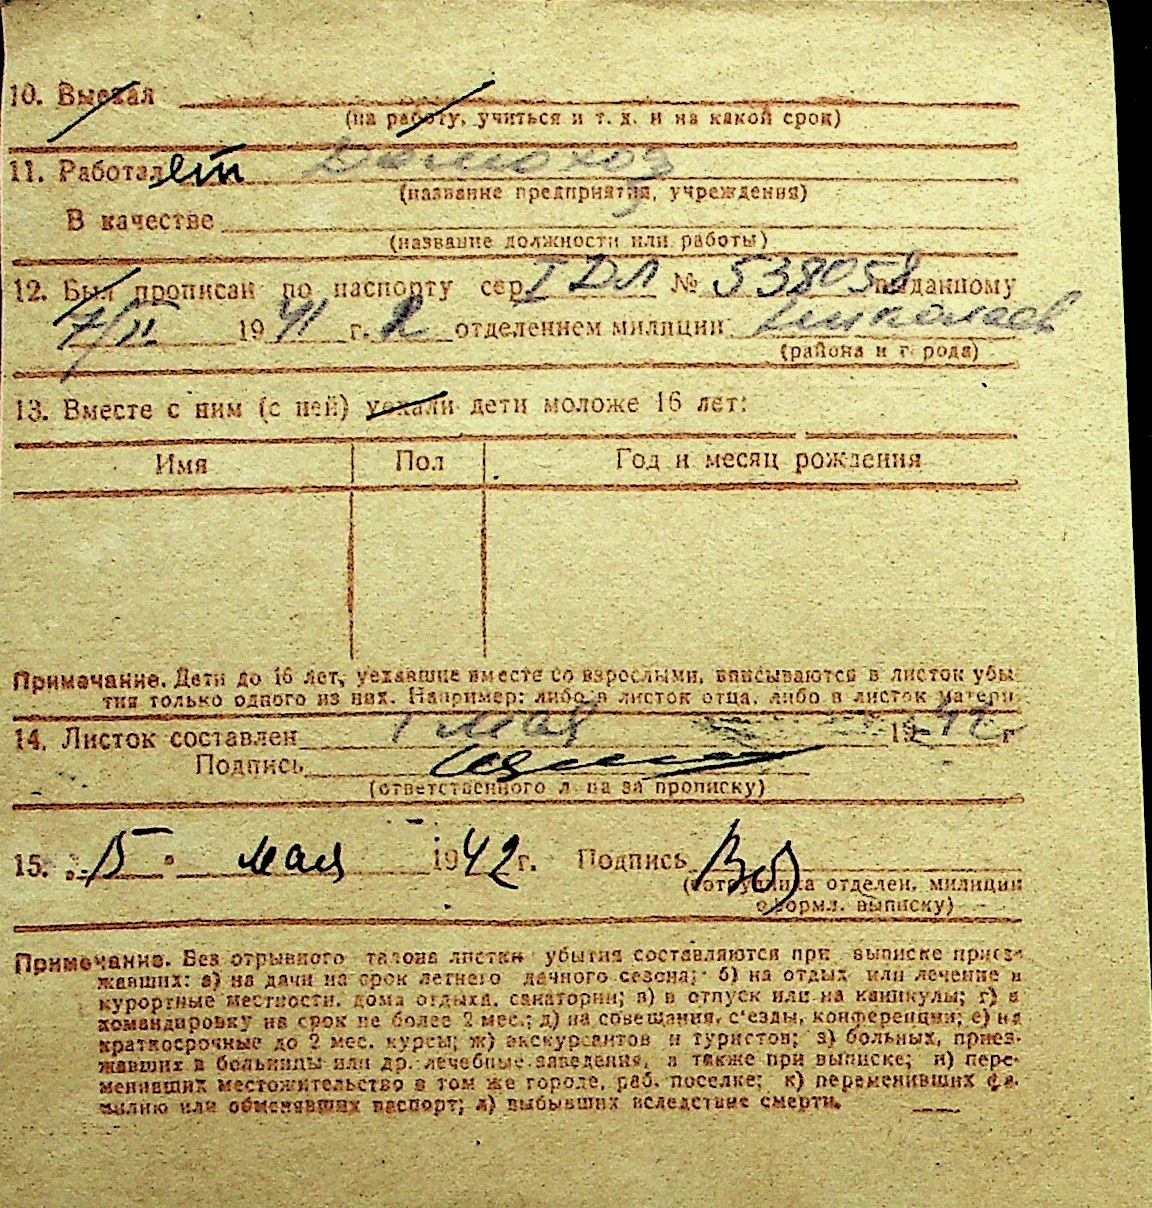 10. Выехал
(на работу, учиться и т. д. и на какой срок)
11. Работает Домохоз
(название предприятия, учреждения)
В качестве
(название должности или работы)
12. Был прописан по паспорту сер. I ДЛ № 538058 выданному
7/II 1941 г. 2 отделением милиции Николаев
(района и города)
13. Вместе с ним (с ней) уехали дети моложе 16 лет:
Имя Пол Год и месяц рождения
Примечание. Дети до 16 лет, уехавшие вместе со взрослыми, вписываются в листок убы-
тия только одного из них. Например: либо в листок отца, либо в листок матери
14. Листок составлен 1 мая 1942 г
Подпись
(ответственного лица за прописку)
15. „15" мая 1942 г. Подпись
(сотрудника отделен. милиции
оформл. выписку)
Примечание. Без отрывного талона листки убытия составляются при выписке приез-
жавших: а) на дачи на срок летнего дачного сезона; б) на отдых или лечение в
курортные местности, дома отдыха, санатории; в) в отпуск или на каникулы; г) в
командировку на срок не более 2 мес.; д) на совещания, с'езды, конференции; е) на
краткосрочные до 2 мес. курсы; ж) экскурсантов и туристов; з) больных, приез-
жавших в больницы или др. лечебные заведения, а также при выписке; и) пере-
менивших местожительство в том же городе, раб. поселке; к) переменивших фа-
милию или обменявших паспорт; л) выбывших вследствие смерти.